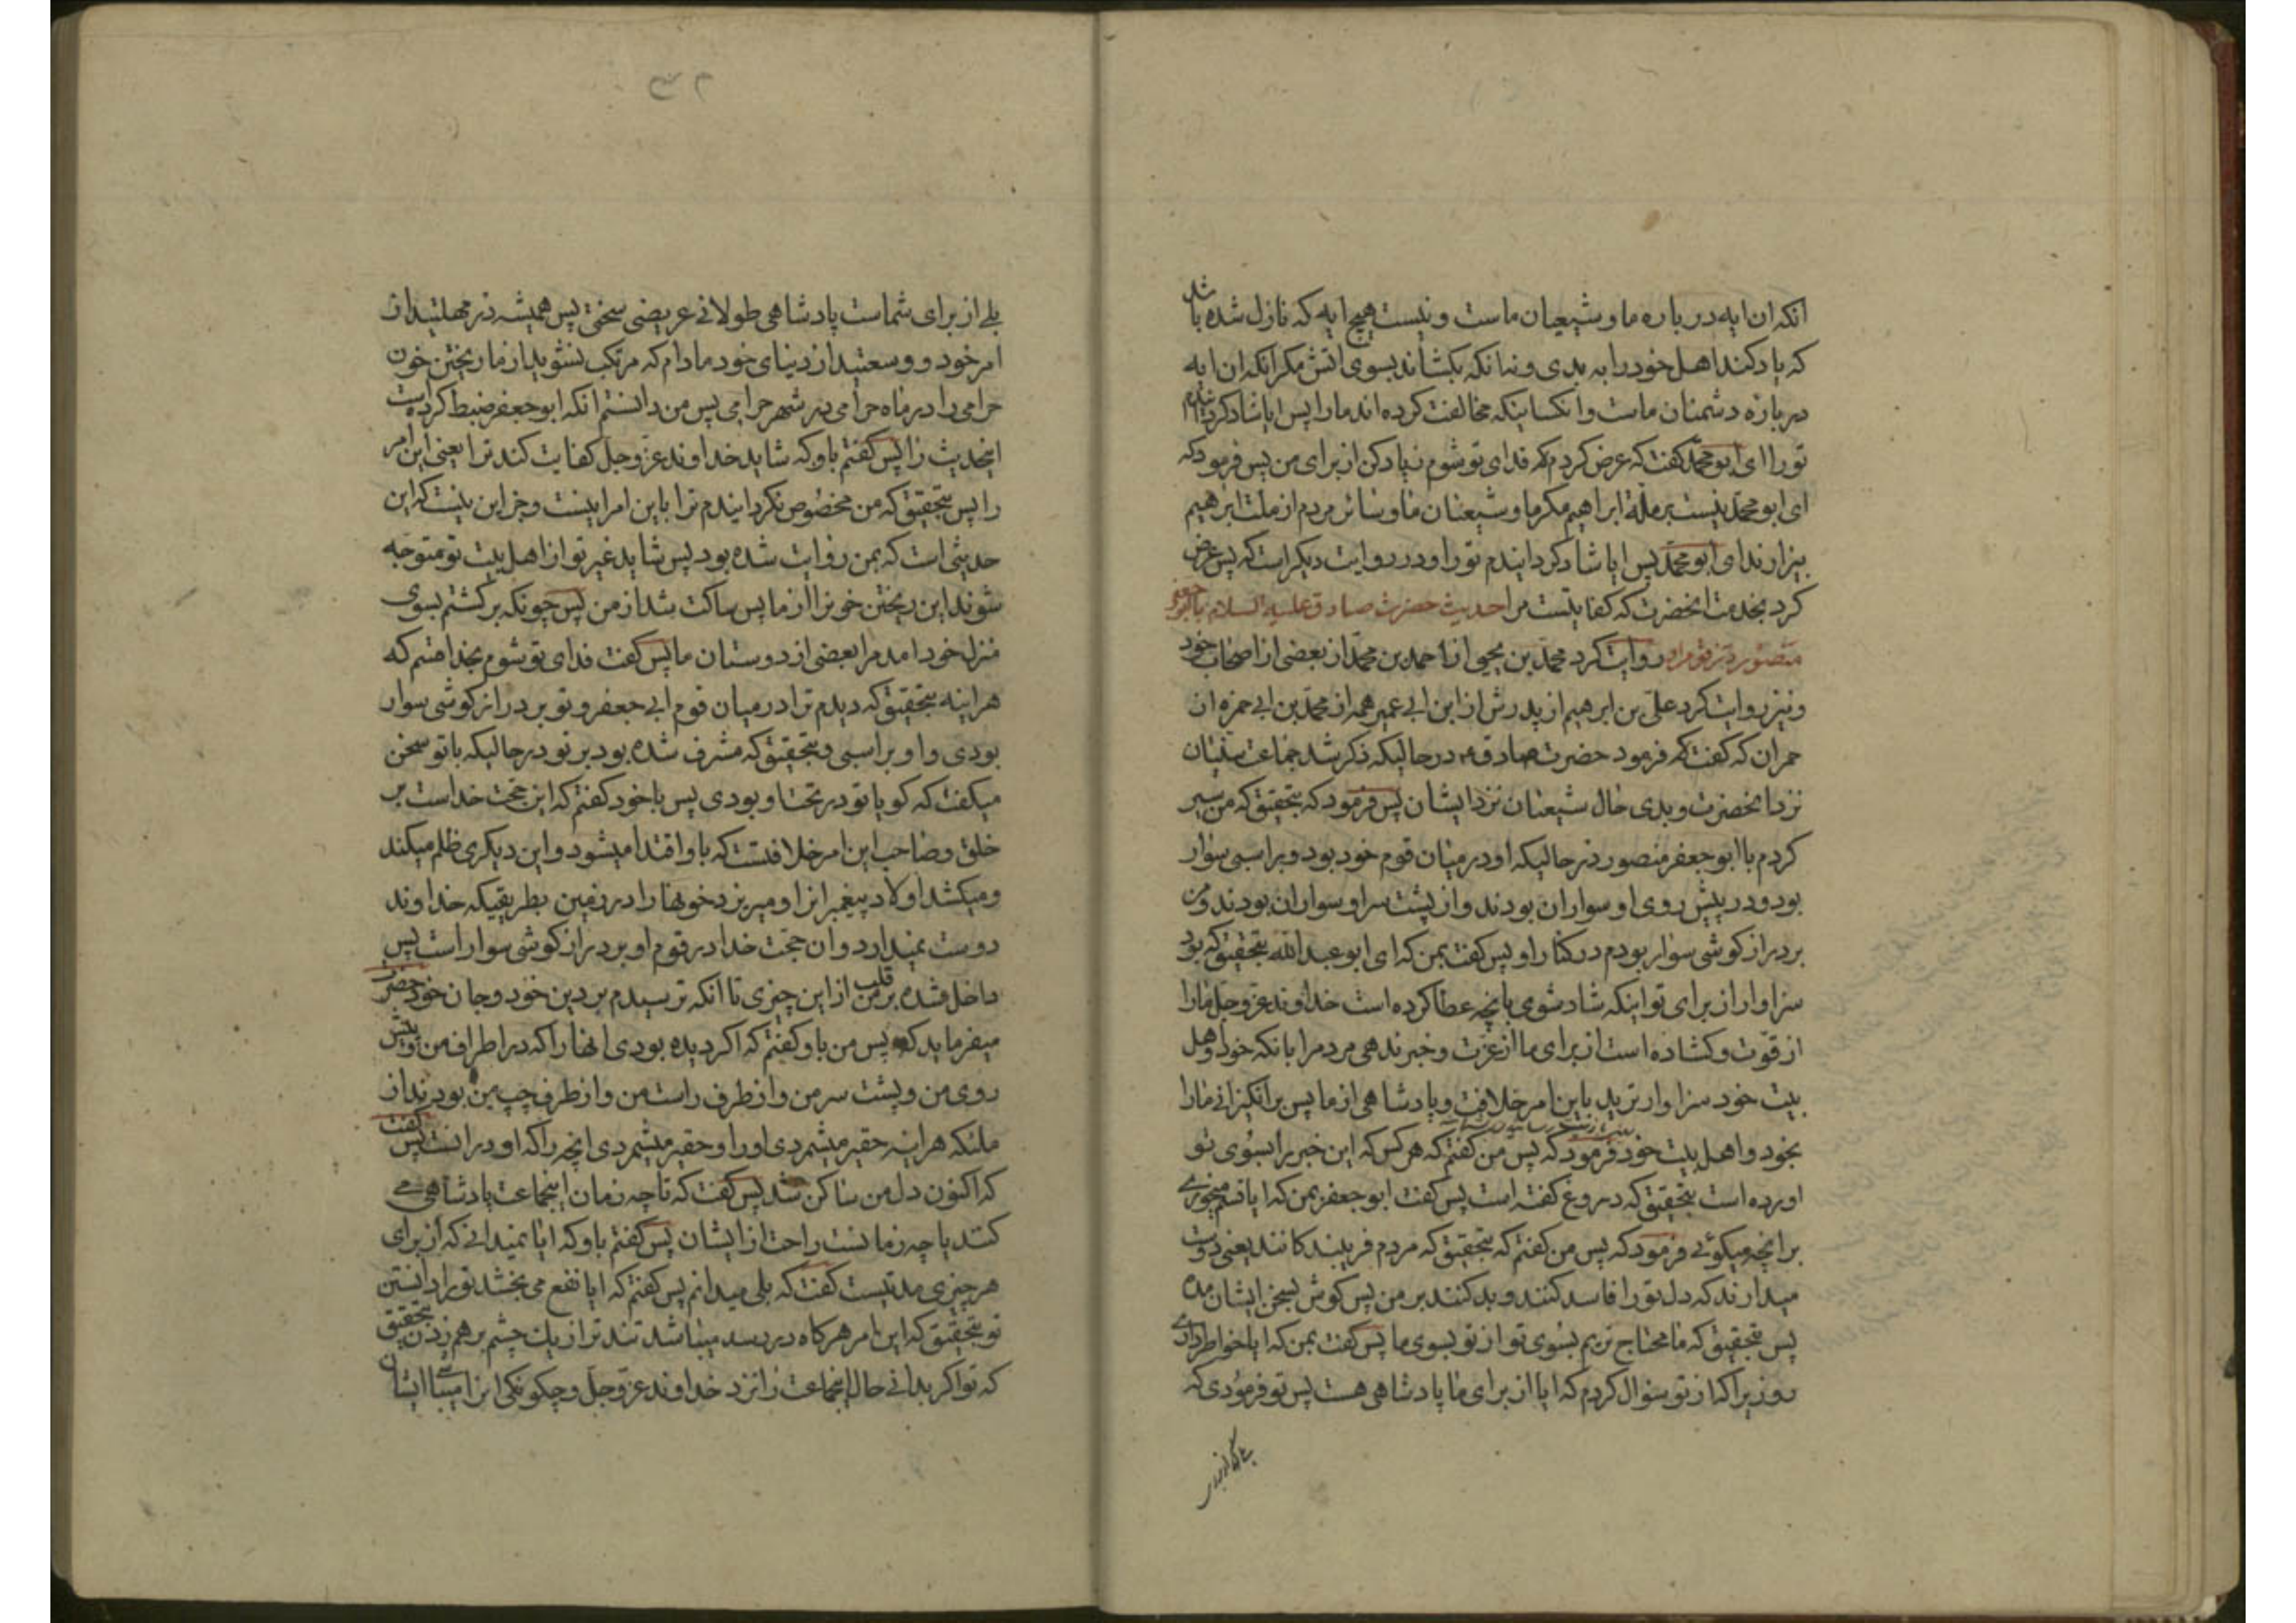 انکه ان ایه در باره ما و شیعیان ماست و نیست هیچ ایه که نازل شده باشد
که یاد کند اهل خود را به بدی و نه انکه بکشاند بسوی اتش مکر انکه ان ایه
در باره دشمنان ماست و انکسانیکه مخالفت کرده اند ما را پس ایا شاد کردانیدم
تو را ای ابو محمد کفت که عرض کردم که فدای تو شوم زیاد کن از برای من پس فرمود که
ای ابو محمد نیست بر ملة ابراهیم مکر ما و شیعتان ما و سائر مردم از ملت ابراهیم
بیزارند ای ابو محمد پس ایا شاد کردانیدم تو را و در روایت دیکر است که پس عرض
کرد بخدمت انحضرت که کفایتست مرا حدیث حضرت صادق علیه السلام با ابو جعفر
منصور در قوم او روایت کرد محمد بن یحیی از احمد بن محمد از بعضی از اصحاب خود
و نیز روایت کرد علی بن ابراهیم از پدرش از ابن ابی عمیر همه از محمد بن ابی حمزه از
حمران که کفت که فرمود حضرت صادق ع در حالیکه ذکر شد جماعت سنیان
نزد انحضرت و بدی حال شیعتان نزد ایشان پس فرمود که بتحقیق که من سیر
کردم با ابو جعفر منصور در حالیکه او در میان قوم خود بود و بر اسبی سوار
بود و در پیش روی او سواران بودند و از پشت سر او سواران بودند و من
بر دراز کوشی سوار بودم در کنار او پس کفت بمن که ای ابو عبد الله بتحقیق که بود
سزاوار از برای تو اینکه شاد شوی بانچه عطا کرده است خداوند عز و جل ما را
از قوت و کشاده است از برای ما از عزت و خبر ندهی مردم را بانکه خود و اهل
بیت خود سزاوار ترید باین امر خلافت و پادشاهی از ما پس برانکیزانی ما را
بخود و اهل بیت خود فرمود که پس من کفتم که هر کس که این خبر را بسوی تو
اورده است بتحقیق که دروغ کفته است پس کفت ابو جعفر بمن که ایا قسم میخوری
بر انچه میکوئی فرمود که پس من کفتم که بتحقیق که مردم فریبندکانند یعنی دوست
میدارند که دل تو را فاسد کنند و بد کنند بر من پس کوش بسخن ایشان مده
پس بتحقیق که ما محتاج تریم بسوی تو از تو بسوی ما پس کفت بمن که ایا خواطر داری
روزیرا که از تو سؤال کردم که ایا از برای ما پادشاهی هست پس تو فرمودی که
۳۲
بلی از برای شماست پادشاهی طولانی عریضی سختی پس همیشه در مهلتید از
امر خود و وسعتید از دنیای خود مادام که مرتکب نشوید از ما ریختن خون
حرامی را در ماه حرامی در شهر حرامی پس من دانستم انکه ابو جعفر ضبط کرده است
اینحدیث را پس کفتم باو که شاید خداوند عز و جل کفایت کند ترا یعنی این امر
را پس بتحقیق که من مخصوص نکردانیدم ترا باین امر اینست و جز این نیست که این
حدیثی است که بمن روایت شده بود پس شاید غیر تو از اهل بیت تو متوجه
شوند این ریختن خونرا از ما پس ساکت شد از من پس چونکه برکشتم بسوی
منزل خود امد مرا بعضی از دوستان ما پس کفت فدای تو شوم بخدا قسم که
هراینه بتحقیق که دیدم ترا در میان قوم ابی جعفر و تو بر دراز کوشی سوار
بودی و او بر اسبی و بتحقیق که مشرف شده بود بر تو در حالیکه با تو سخن
میکفت که کویا تو در تحت او بودی پس با خود کفتم که این حجت خداست بر
خلق و صاحب این امر خلافتست که باو اقتدا میشود و این دیکری ظلم میکند
و میکشد اولاد پیغمبرانرا و میریزد خونها را در زمین بطریقیکه خداوند
دوست نمیدارد و ان حجت خدا در قوم او بر دراز کوشی سوار است پس
داخل شده بر قلب من از این چیزی تا انکه ترسیدم بر دین خود و جان خود حضرت
میفرماید که پس من باو کفتم که اکر دیده بودی انها را که در اطراف من و پیش
روی من و پشت سر من و از طرف راست من و از طرف چپ من بودند از
ملئکه هراینه حقیر میشمردی او را و حقیر میشمردی انچه را که او در انست پس کفت
که اکنون دل من ساکن شد پس کفت که تا چه زمان اینجماعت پادشاهی می
کنند یا چه زمانست راحت از ایشان پس کفتم باو که ایا نمیدانی که از برای
هر چیزی مدتیست کفت که بلی میدانم پس کفتم که ایا نفع می بخشد تو را دانستن
تو بتحقیق که این امر هرکاه در رسد میباشد تند تر از یک چشم بر هم زدن بتحقیق
که تو اکر بدانی حال اینجماعت را نزد خداوند عز و جل و چکونکی انرا